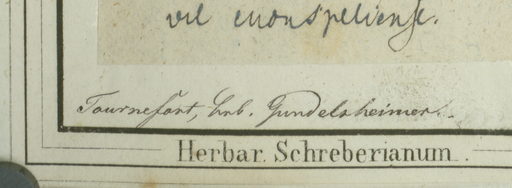 vel monspeliense.
Tournefort, hrb. Gundelsheimer.
Herbar. Schreberianum.